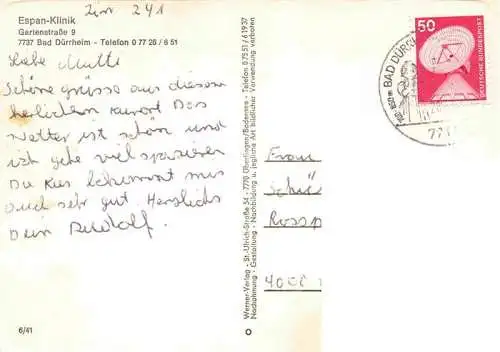 Zim 241
Espan-Klinik
Gartenstraße 9
7737 Bad Dürrheim - Telefon 0 77 26 / 6 51
Liebe Mutti
Schöne grüsse aus diesem
herlichen Kurort Das
Wetter ist schön und
ich gehe viel spazieren
Die Kur bekommt mir
auch sehr gut Herzlichst
Dein Rudolf.
6/41
Werner-Verlag - St.-Ulrich-Straße 54 - 7770 Überlingen/Bodensee - Telefon 0 75 51 / 6 19 37
Gestaltung - Nachbildung u. jegliche Art bildlicher Verwendung verboten
50
DEUTSCHE BUNDESPOST
BAD DÜRR
77
Frau
Rossp
4000